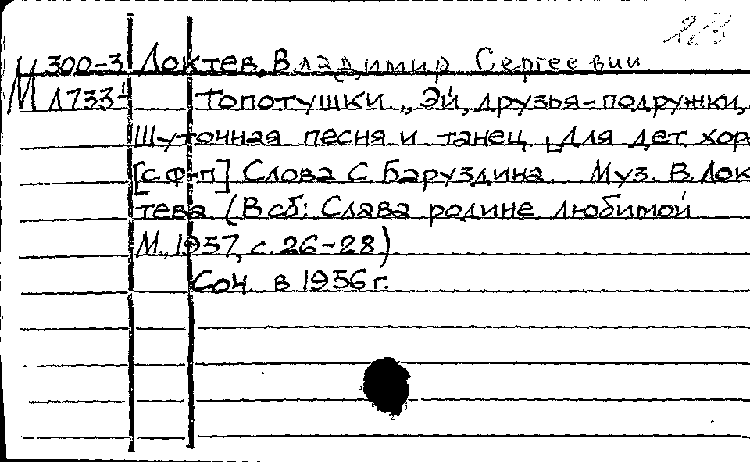 М 300-3 Локтев, Владимир Сергеевич
М Л733-
Топотушки „Эй, друзья-подружки,
Шуточная песня и танец [Для дет. хор
[с ф-п] Слова С. Баруздина. Муз. В. Лок
тева (В сб: Слава родине любимой
М., 1957, с. 26-28)
Соч. в 1956 г.